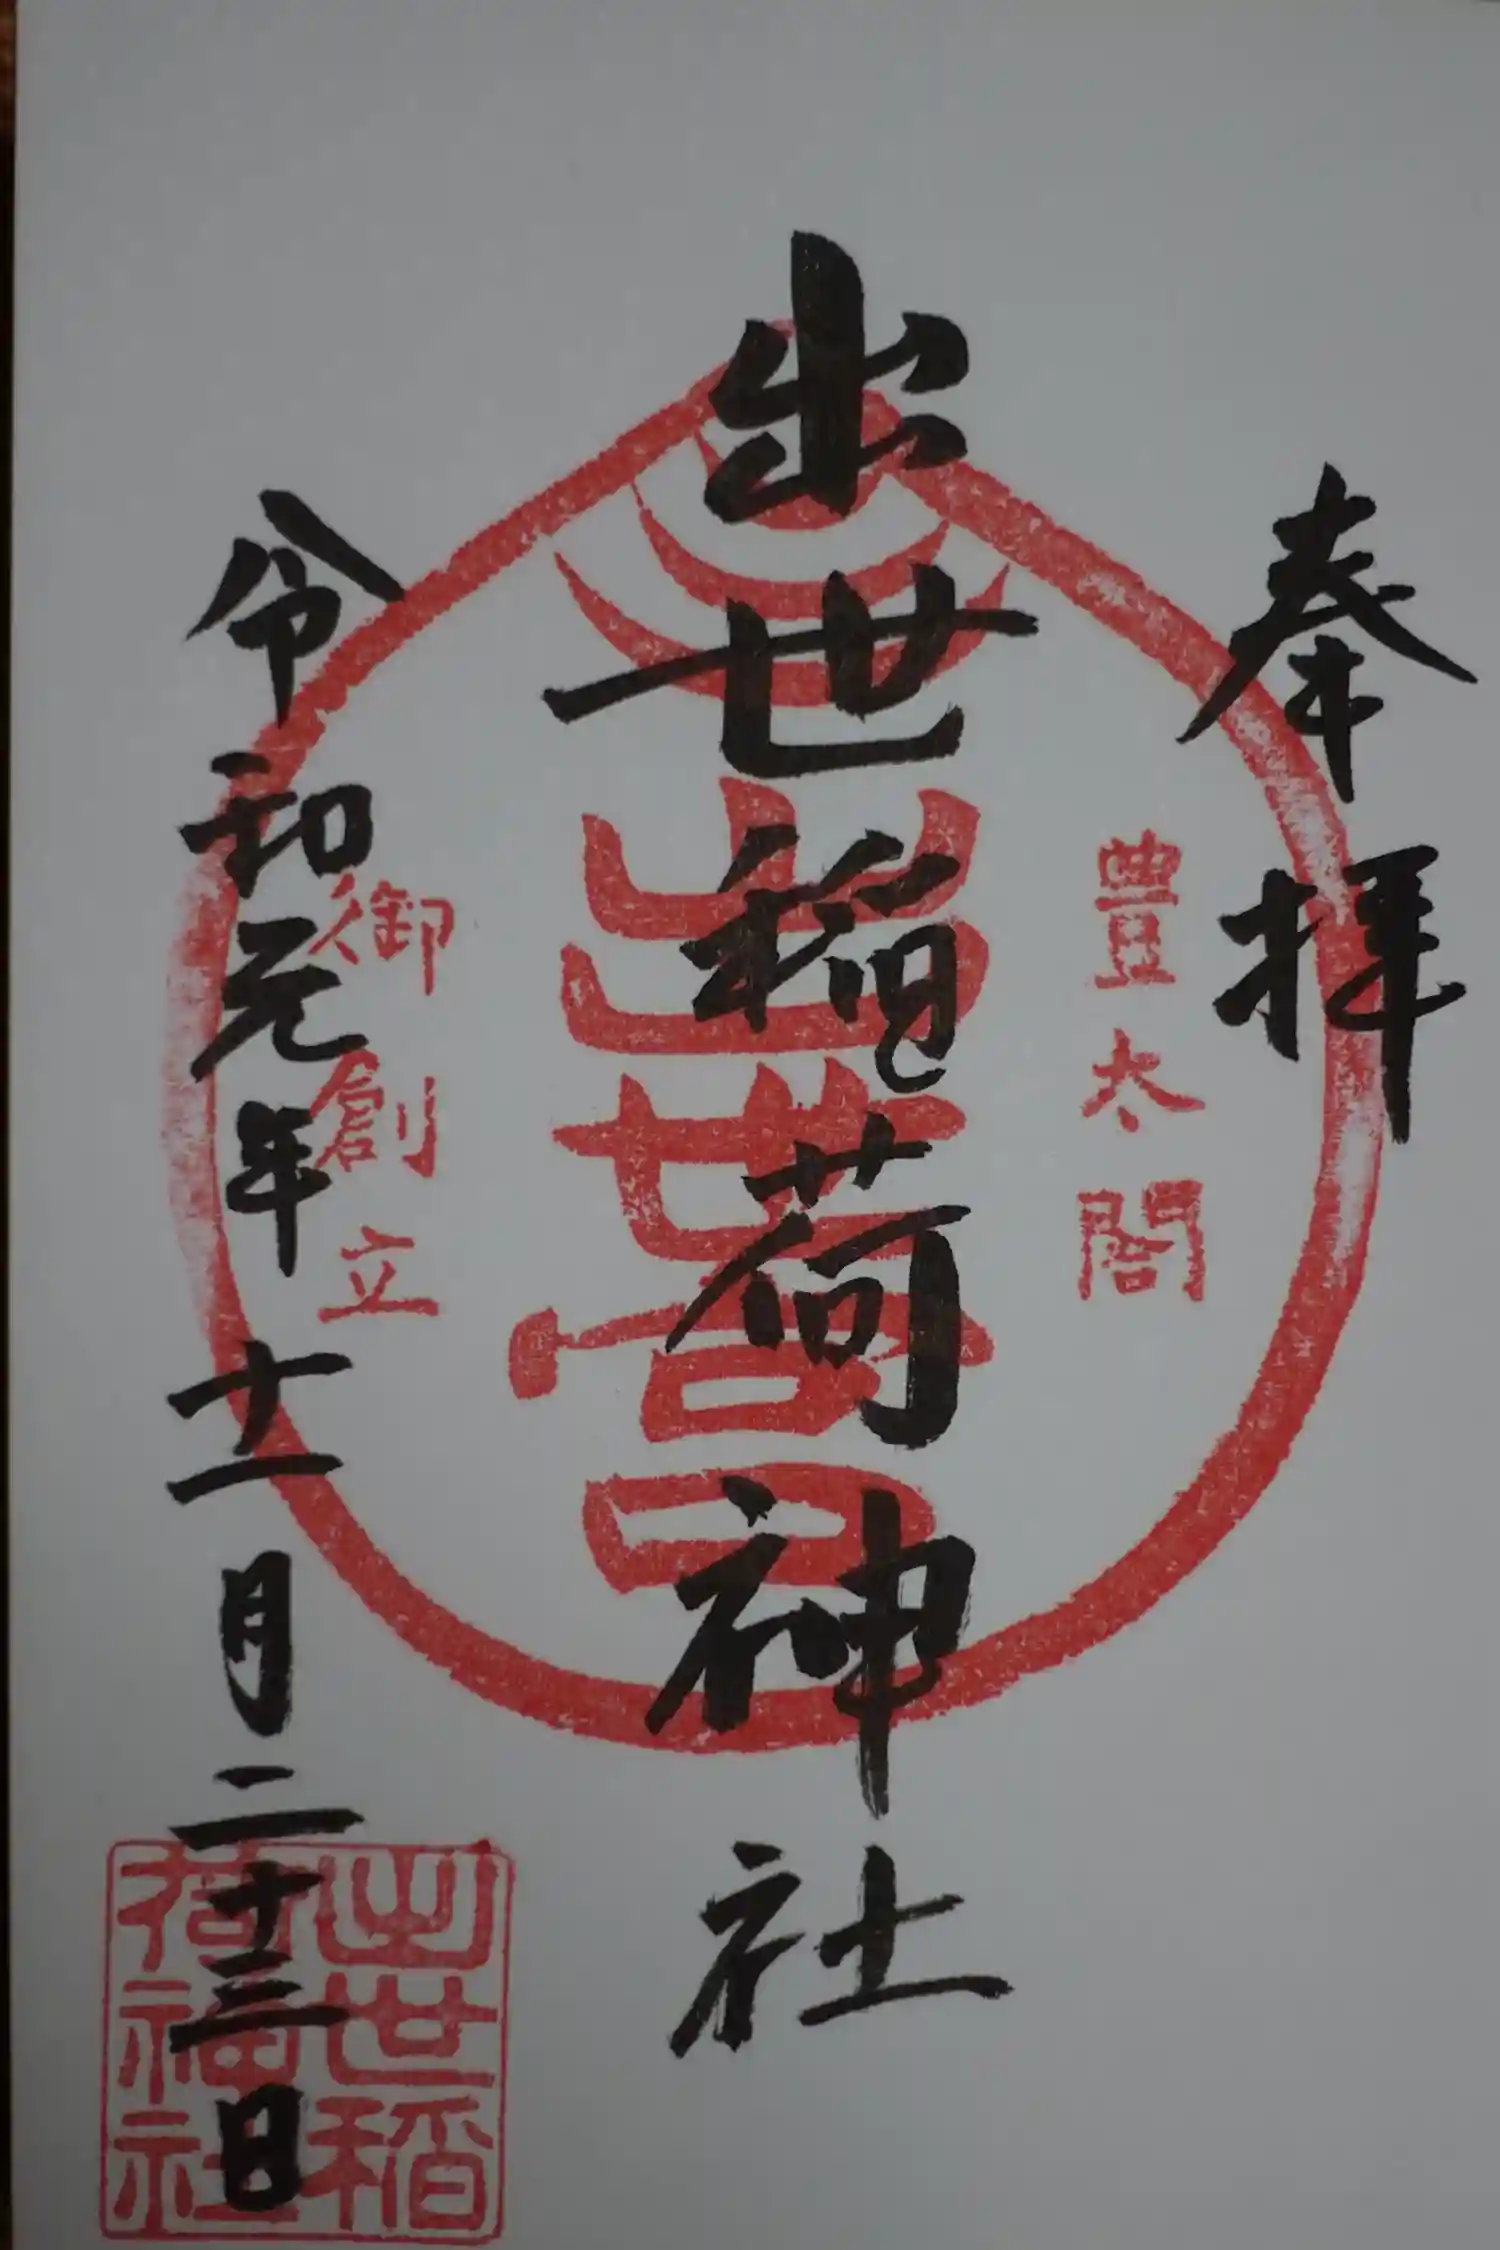 奉拝
豊太閤
出世稲荷神社
出世開運
御創立
令和元年十一月二十三日
出世稲
荷神社